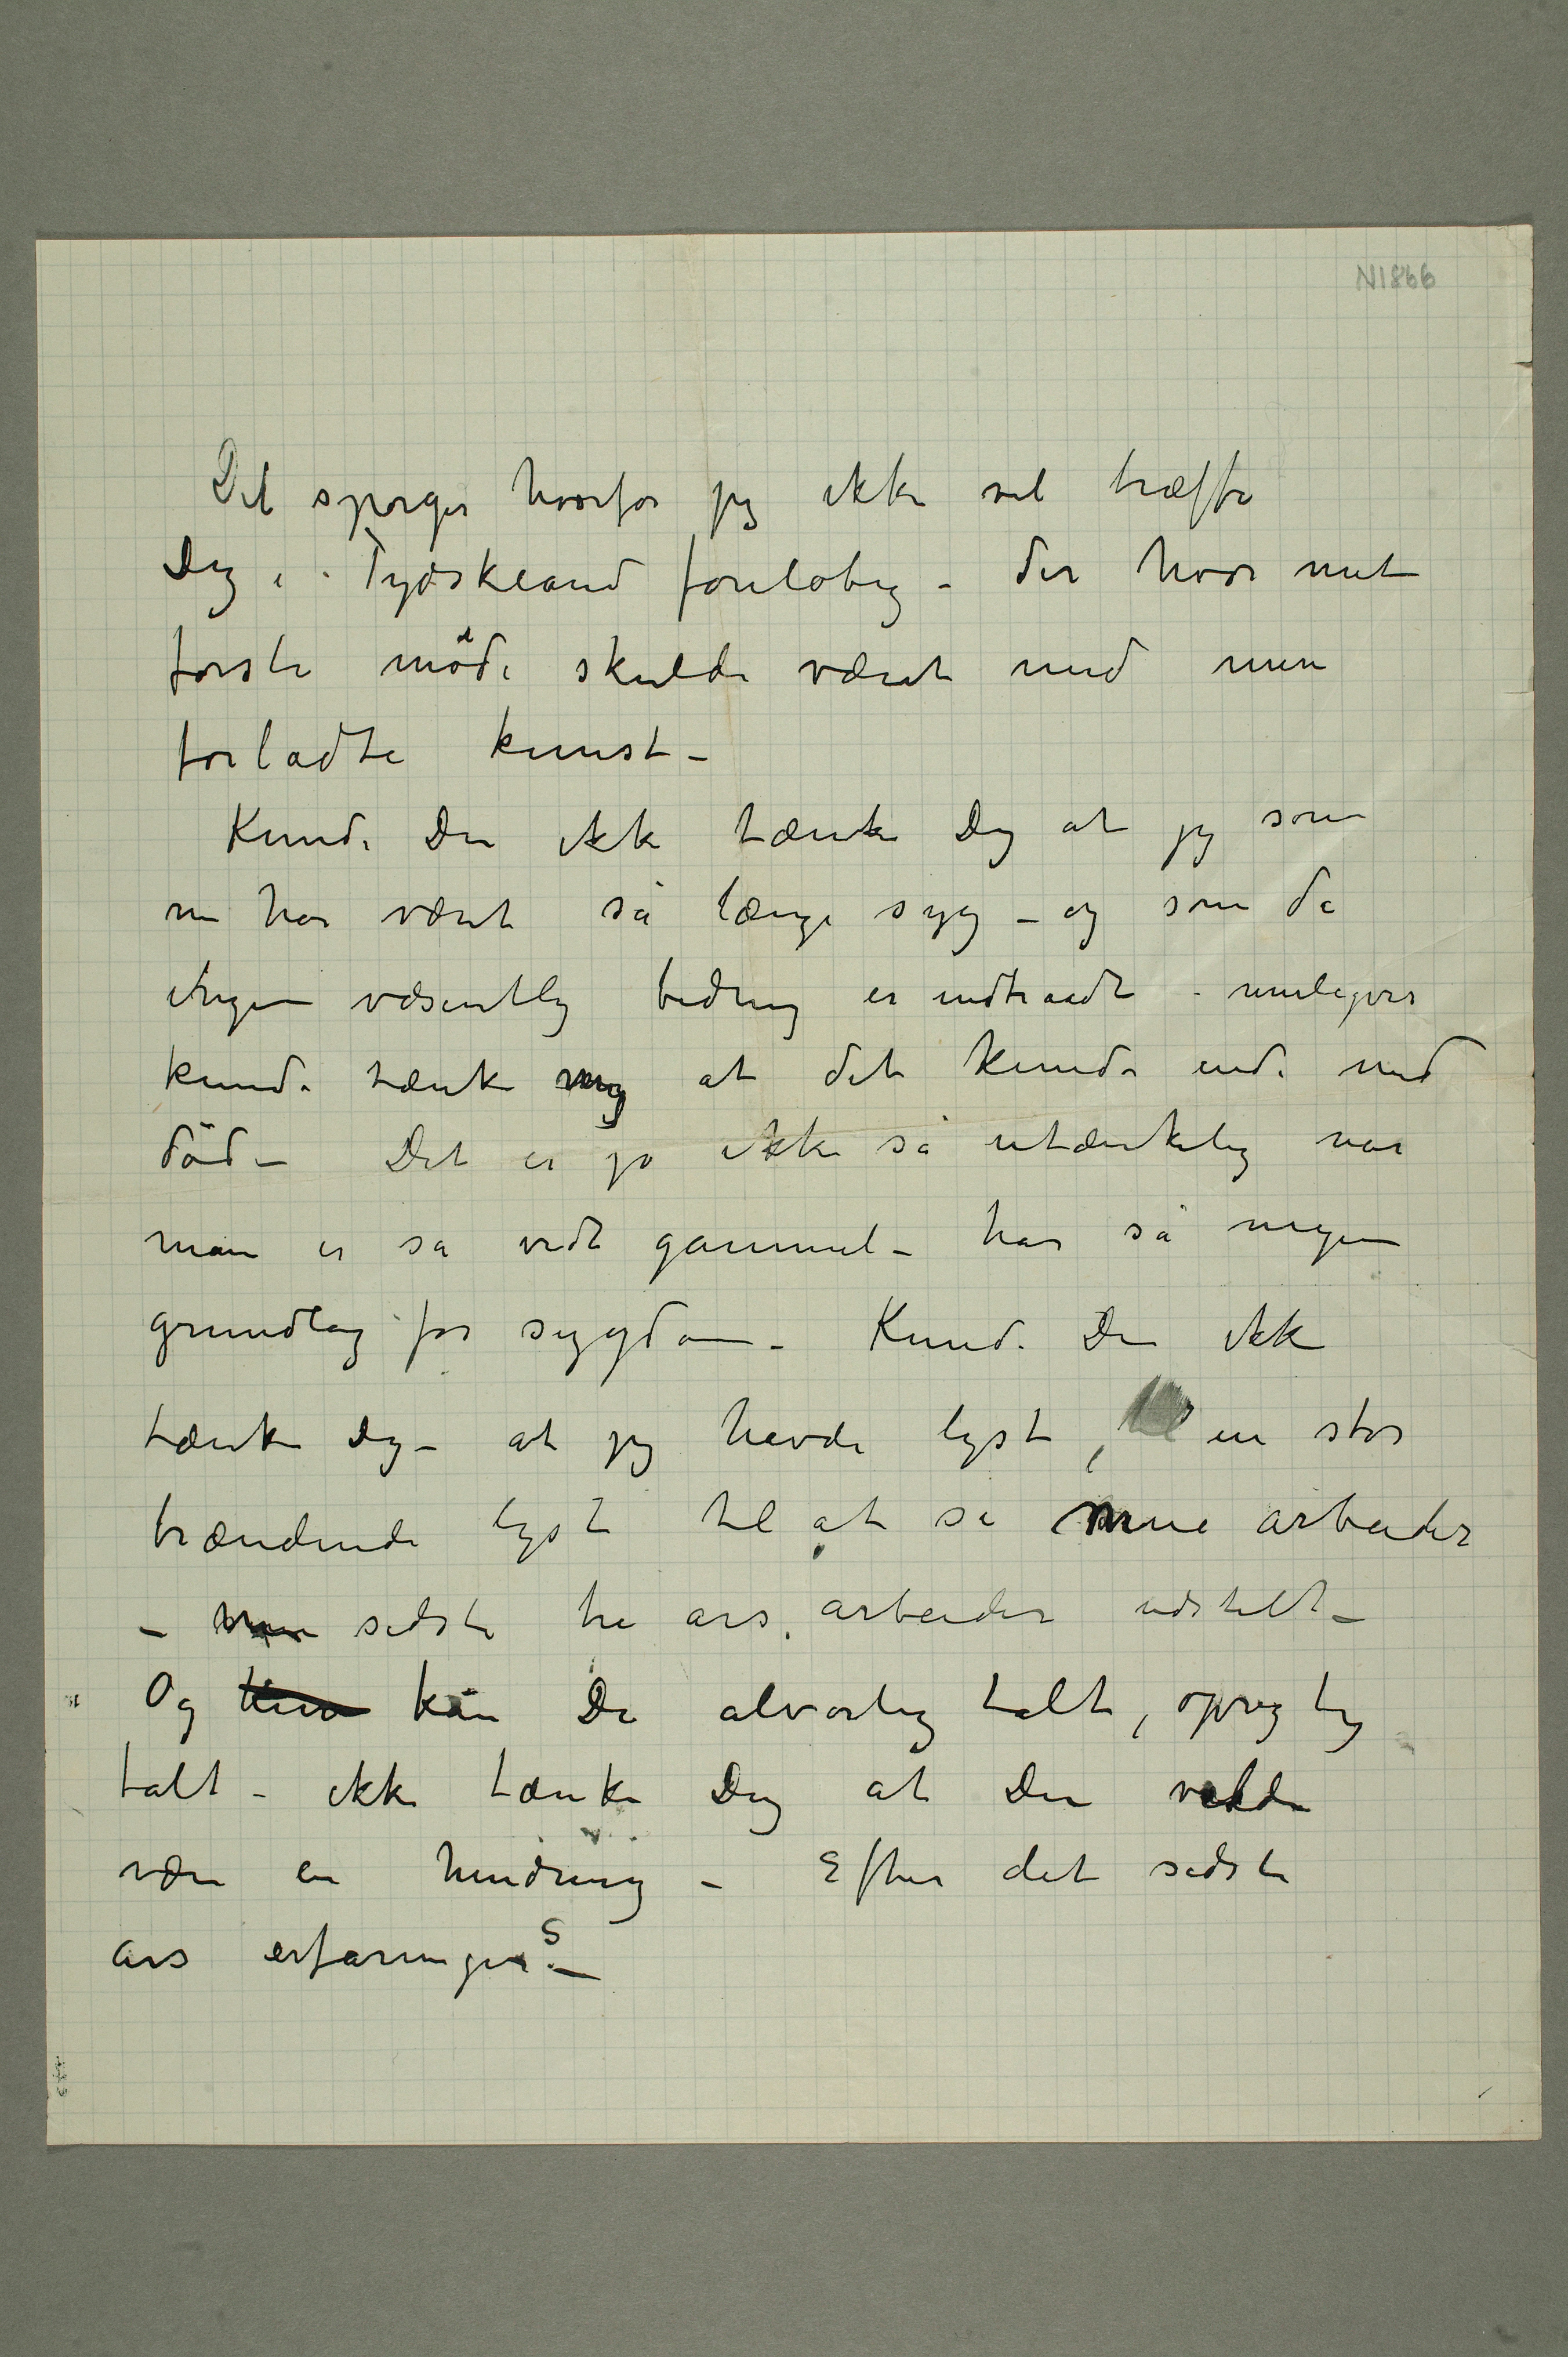 N1866
Det spørger hvorfor jeg ikke vil træffe
Dig i Tydskland foreløbig – der hvor mit
første møde skulde været med min
forladte kunst –
Kunde Du ikke tænke Dig at jeg som
nu har været så længe syg – og som da
ingen væsentlig bedring er indtraadt – muligvis
kunde tænke mig at det kunde ende med
död – Det er jo ikke så utænkelig når
man er så vidt gammel – har så megen
grundlag for sygdom – Kunde Du ikke
tænke Dig – at jeg havde lyst, til en stor
brændende lyst til at se mine arbeider
– mine sidste tre års arbeider udstillt –
Og kun kan Du alvorlig talt, oprigtig
talt – ikke tænke Dig at Du vilde
være en hindring – Efter det sidste
års erfaringer S –